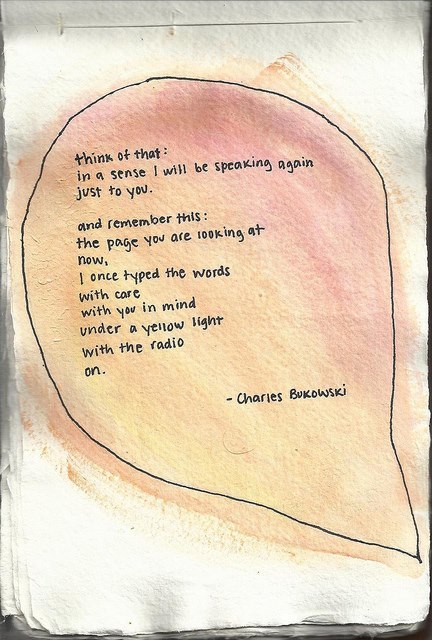 think of that:
in a sense I will be speaking again
just to you.
and remember this:
the page you are looking at
now,
I once typed the words
with care
with you in mind
under a yellow light
with the radio
on.
- Charles Bukowski